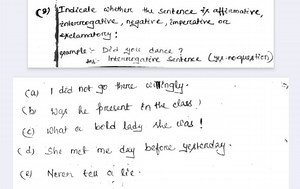 (2) Indicate whether the sentence is affirmative,
interrogative, negative, imperative or
exclamatory :
example :- Did you dance ?
Ans:- Interrogative sentence (yes-no question)
(a) I did not go there willingly.
(b) Was he present in the class ?
(c) What a bold lady she was !
(d) She met me day before yesterday.
(e) Never tell a lie.